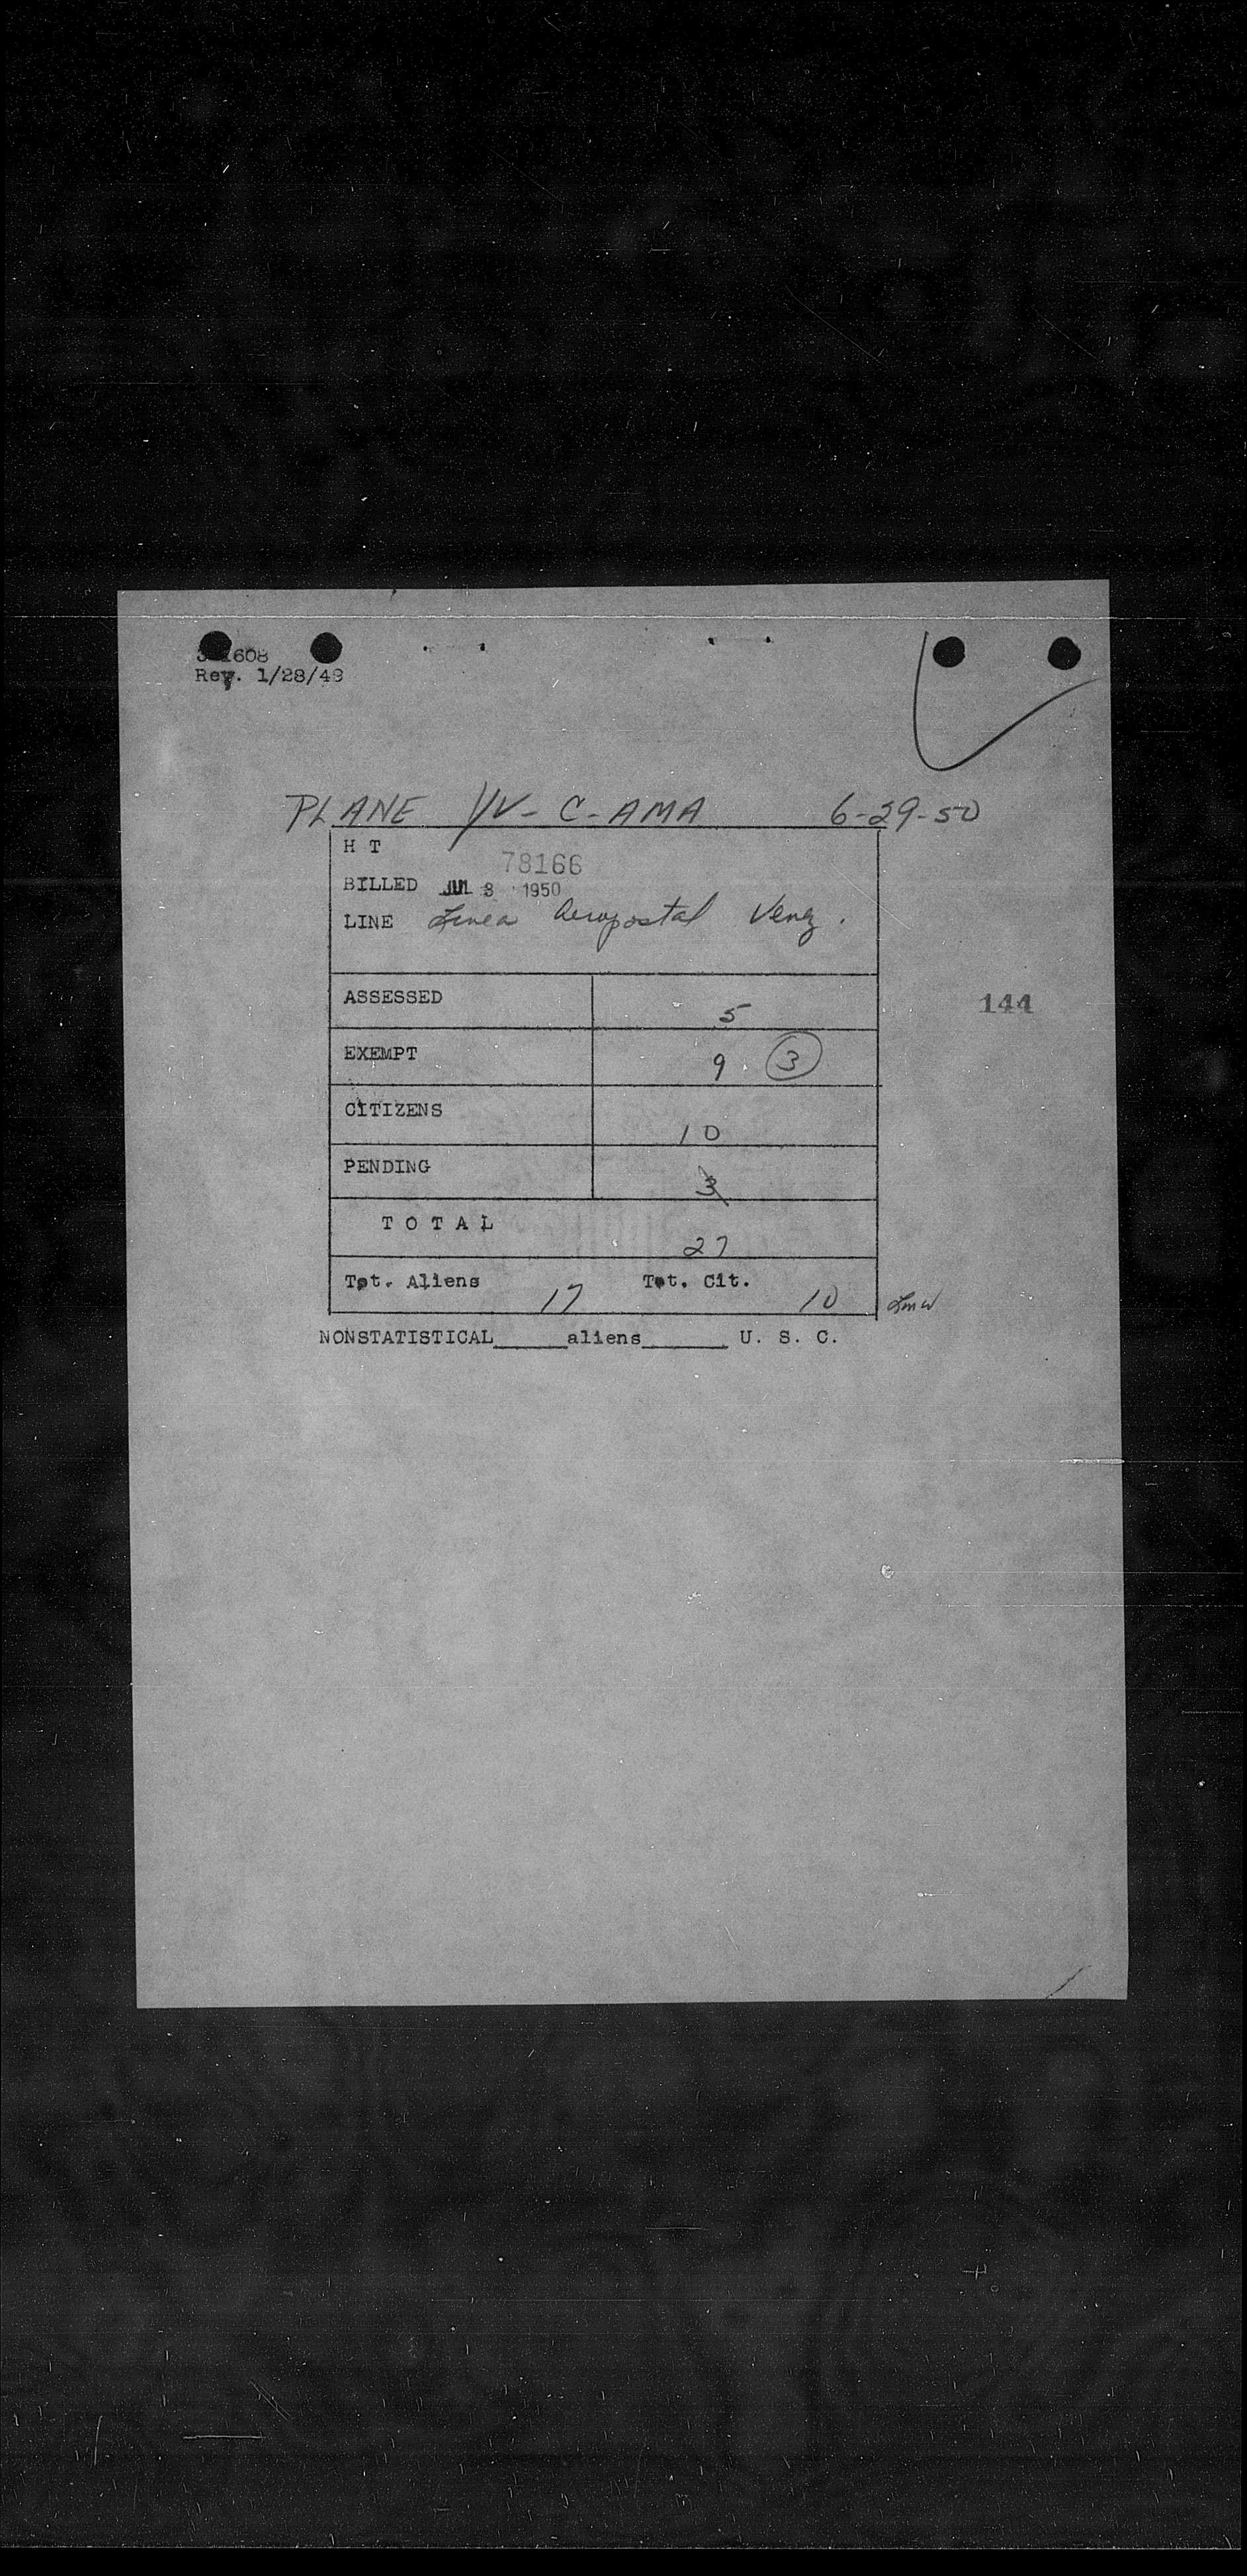 1608
Rev. 1/28/49
PLANE YV-C-AMA 6-29-50
H T
78166
BILLED JUL 3 1950
LINE Linea Aeropostal Venez.
144
ASSESSED 5
EXEMPT 9 3
CITIZENS 10
PENDING 3
TOTAL 27
Tot. Aliens 17 Tot. Cit. 10
NONSTATISTICAL______aliens_______ U. S. C.